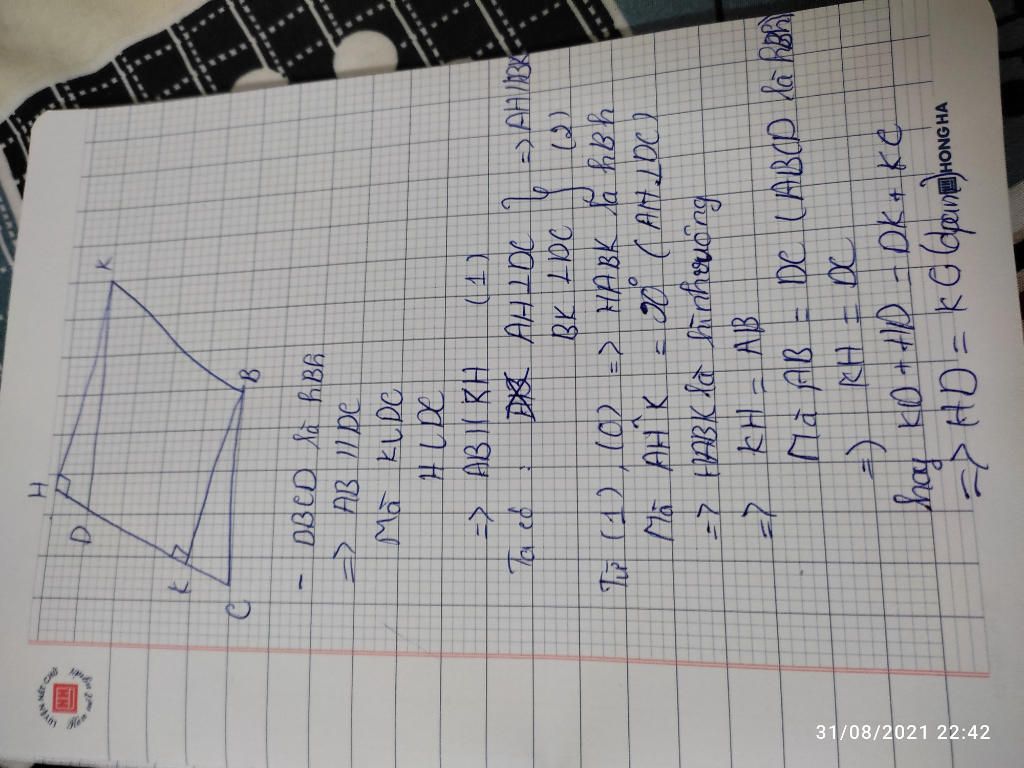 H
D
K
K
C
B
- DBCD là hBh
=> AB // DC
Mà K ∈ DC
H ∈ DC
=> AB // KH (1)
Ta có : AH ⊥ DC } => AH // BK
BK ⊥ DC } (2)
Từ (1), (0) => HABK là hBh
Mà AĤK = 90° (AH ⊥ DC)
=> HABK là
=> KH = AB
Mà AB = DC (ABCD là hBh)
=> KH = DC
hay KD + HD = DK + KC
=> HD = KC (đpcm)
LUYỆN NÉT CHỮ
NH
HONG HA
31/08/2021 22:42